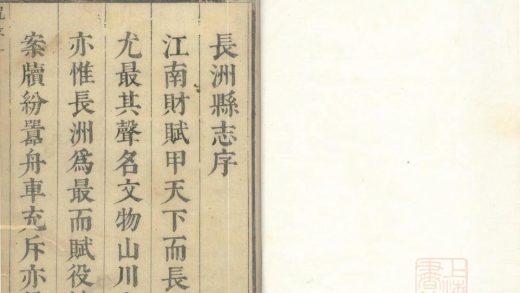 長洲縣志序
江南財賦甲天下而長
尤最其聲名文物山川
亦惟長洲爲最而賦役
案牘紛囂舟車充斥亦